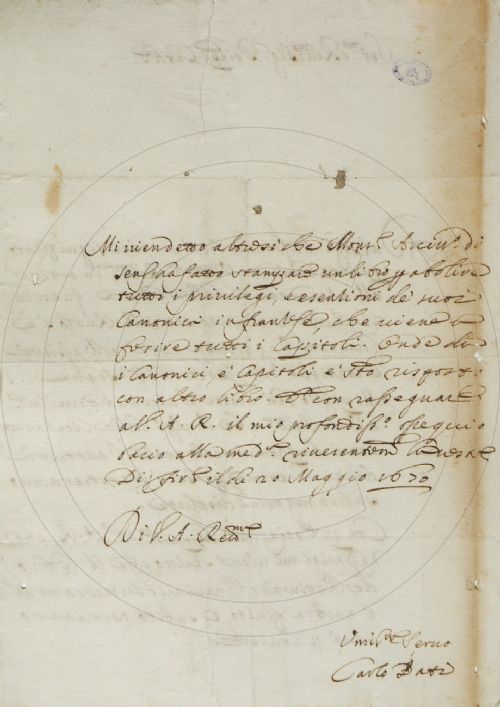 Mi vien detto altresi che Mons.r Arciv.o di
Sens ha fatto stampare un libro p abolire
tutti i privilegi, e esentioni de' suoi
Canonici in franzese, che viene a
ferire tutti i Capitoli. Onde da
i Canonici, e Capitoli è stº risposto
con altro libro. E con rassegnare
a V. A. R. il mio profondiss.º ossequio
bacio alla med.a riverentem.te la veste
Di fir.e il dì 20 Maggio 1670
Di V. A. Rev.ma
Umil.mo Servo
Carlo Dati